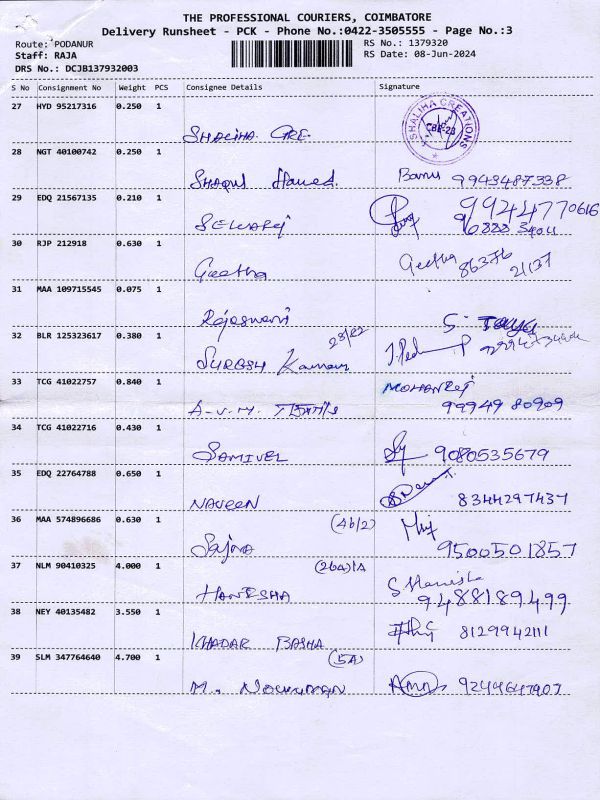 THE PROFESSIONAL COURIERS, COIMBATORE
Delivery Runsheet - PCK - Phone No.:0422-3505555 - Page No.:3
Route: PODANUR RS No.: 1379320
Staff: RAJA RS Date: 08-Jun-2024
DRS No.: DCJB137932003
S No Consignment No Weight PCS Consignee Details Signature
27 HYD 95217316 0.250 1
SHALIHA CRE. SHALIHA CREATIONS CBE-23
28 NGT 40100742 0.250 1
Shaqul Hameed. Banu 9943487338
29 EDQ 21567135 0.210 1
SELVARAJ 9944770616
30 RJP 212918 0.630 1
Geetha Geetha 86376 21137
31 MAA 109715545 0.075 1
Rajaswari S.
32 BLR 125323617 0.380 1
SURESH Kumar
33 TCG 41022757 0.840 1
A.V.M. MOHANRAJ 99949 80909
34 TCG 41022716 0.430 1
SAMIVEL 9080535679
35 EDQ 22764788 0.650 1
NAVEEN 8344297437
36 MAA 574896686 0.630 1 (4b/2)
Sajna 9500501857
37 NLM 90410325 4.000 1
HANESHA S Hanisha 9488189499
38 NEY 40135482 3.550 1
KHADAR BASHA 8129942111
39 SLM 347764640 4.700 1 (5A)
M. NOWHMAN 9244647907